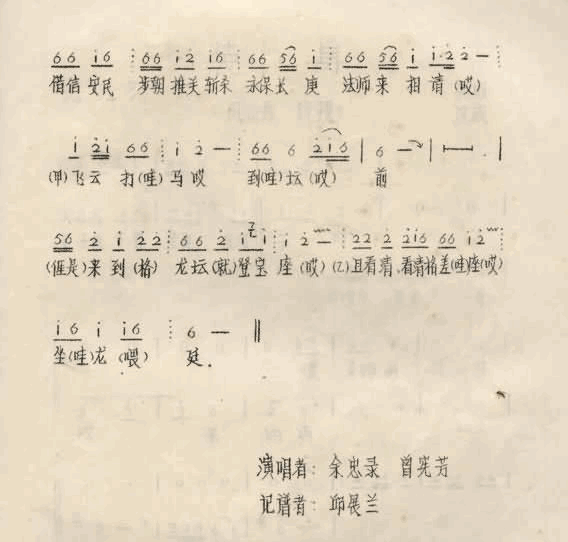 66 i6 ⋮ 66 i2 i6 ⋮ 66 56 i ⋮ 66 56 i i·2 2 — ⋮
借信安民 步朝推关斩系 永保长庚 法师来相请(哎)
i 2i 66 ⋮ i 2 — ⋮ 66 6 2i6 | 6 — | |—| |
(甲)飞云打(哇)马哎 到(哇)坛(哎)前
56 2 i 22 ⋮ 66 2 i i ⋮ i 2 — ⋮ 22 2 2i6 66 i2 ⋮
(倨是)来到(格)龙坛(就)登宝座(哎)(乙)且看清,看清格差(哇)座(哎)
i6 i i6 ⋮ 6 — ‖
坐(哇)龙(喂)廷.
演唱者: 余忠录 曾宪芳
记谱者: 邱展兰